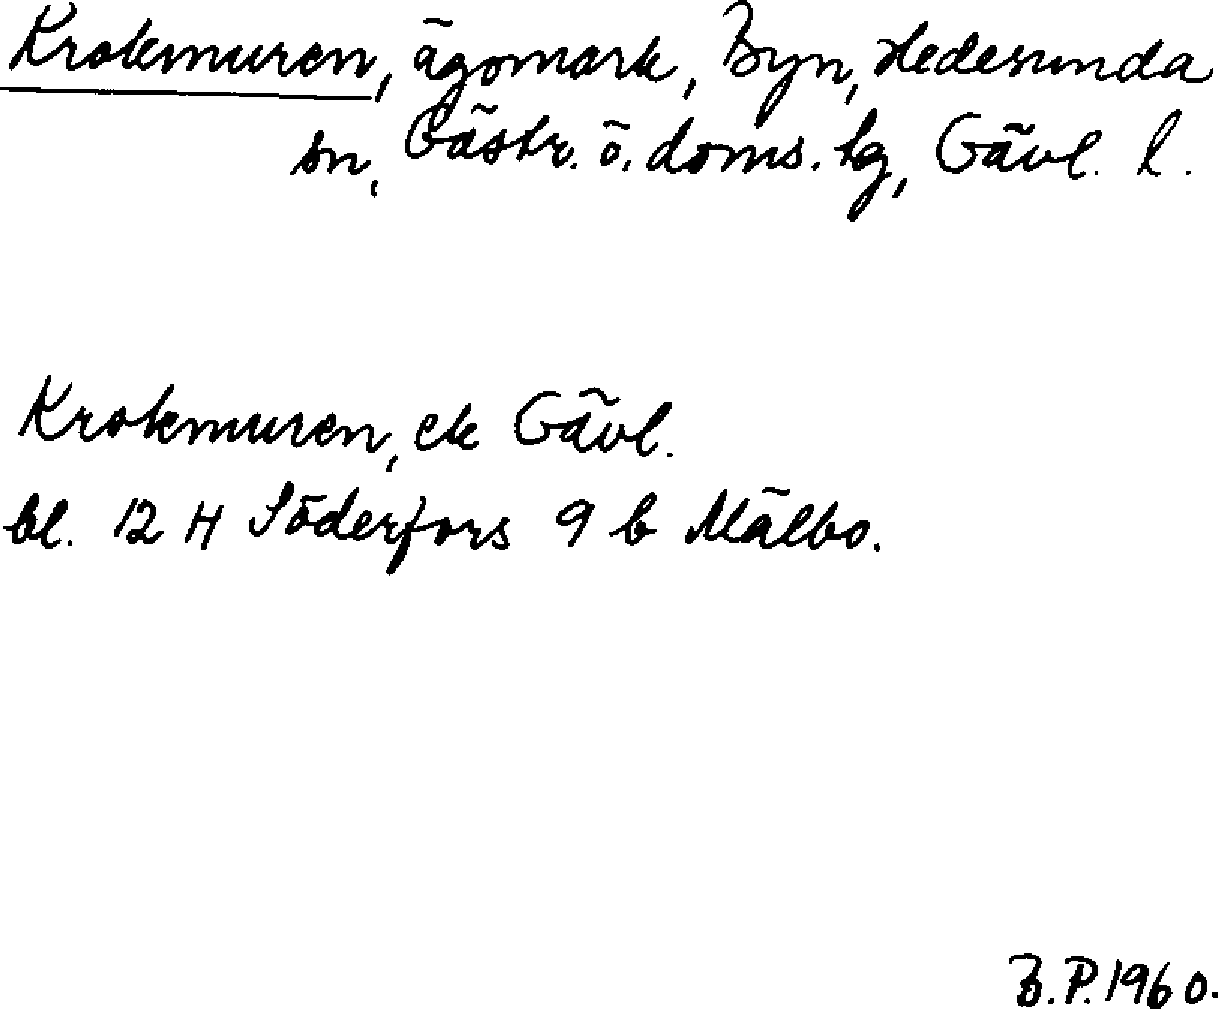 Krokmuren, ägomark, Byn, Hedesunda
sn, Gästr. ö. doms. tg, Gävl. l.
Krokmuren, ek Gävl.
bl. 12 H Söderfors 9 b Mälbo.
B.P. 1960.